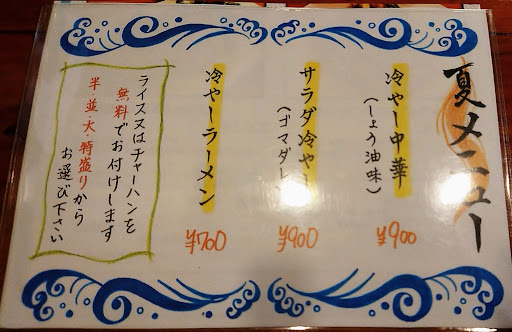 夏メニュー
冷やし中華
(しょう油味)
¥900
サラダ冷やし
(ゴマダレ
¥900
冷やしラーメン
¥700
ライス又はチャーハンを
無料でお付けします
半・並・大・特盛りから
お選び下さい